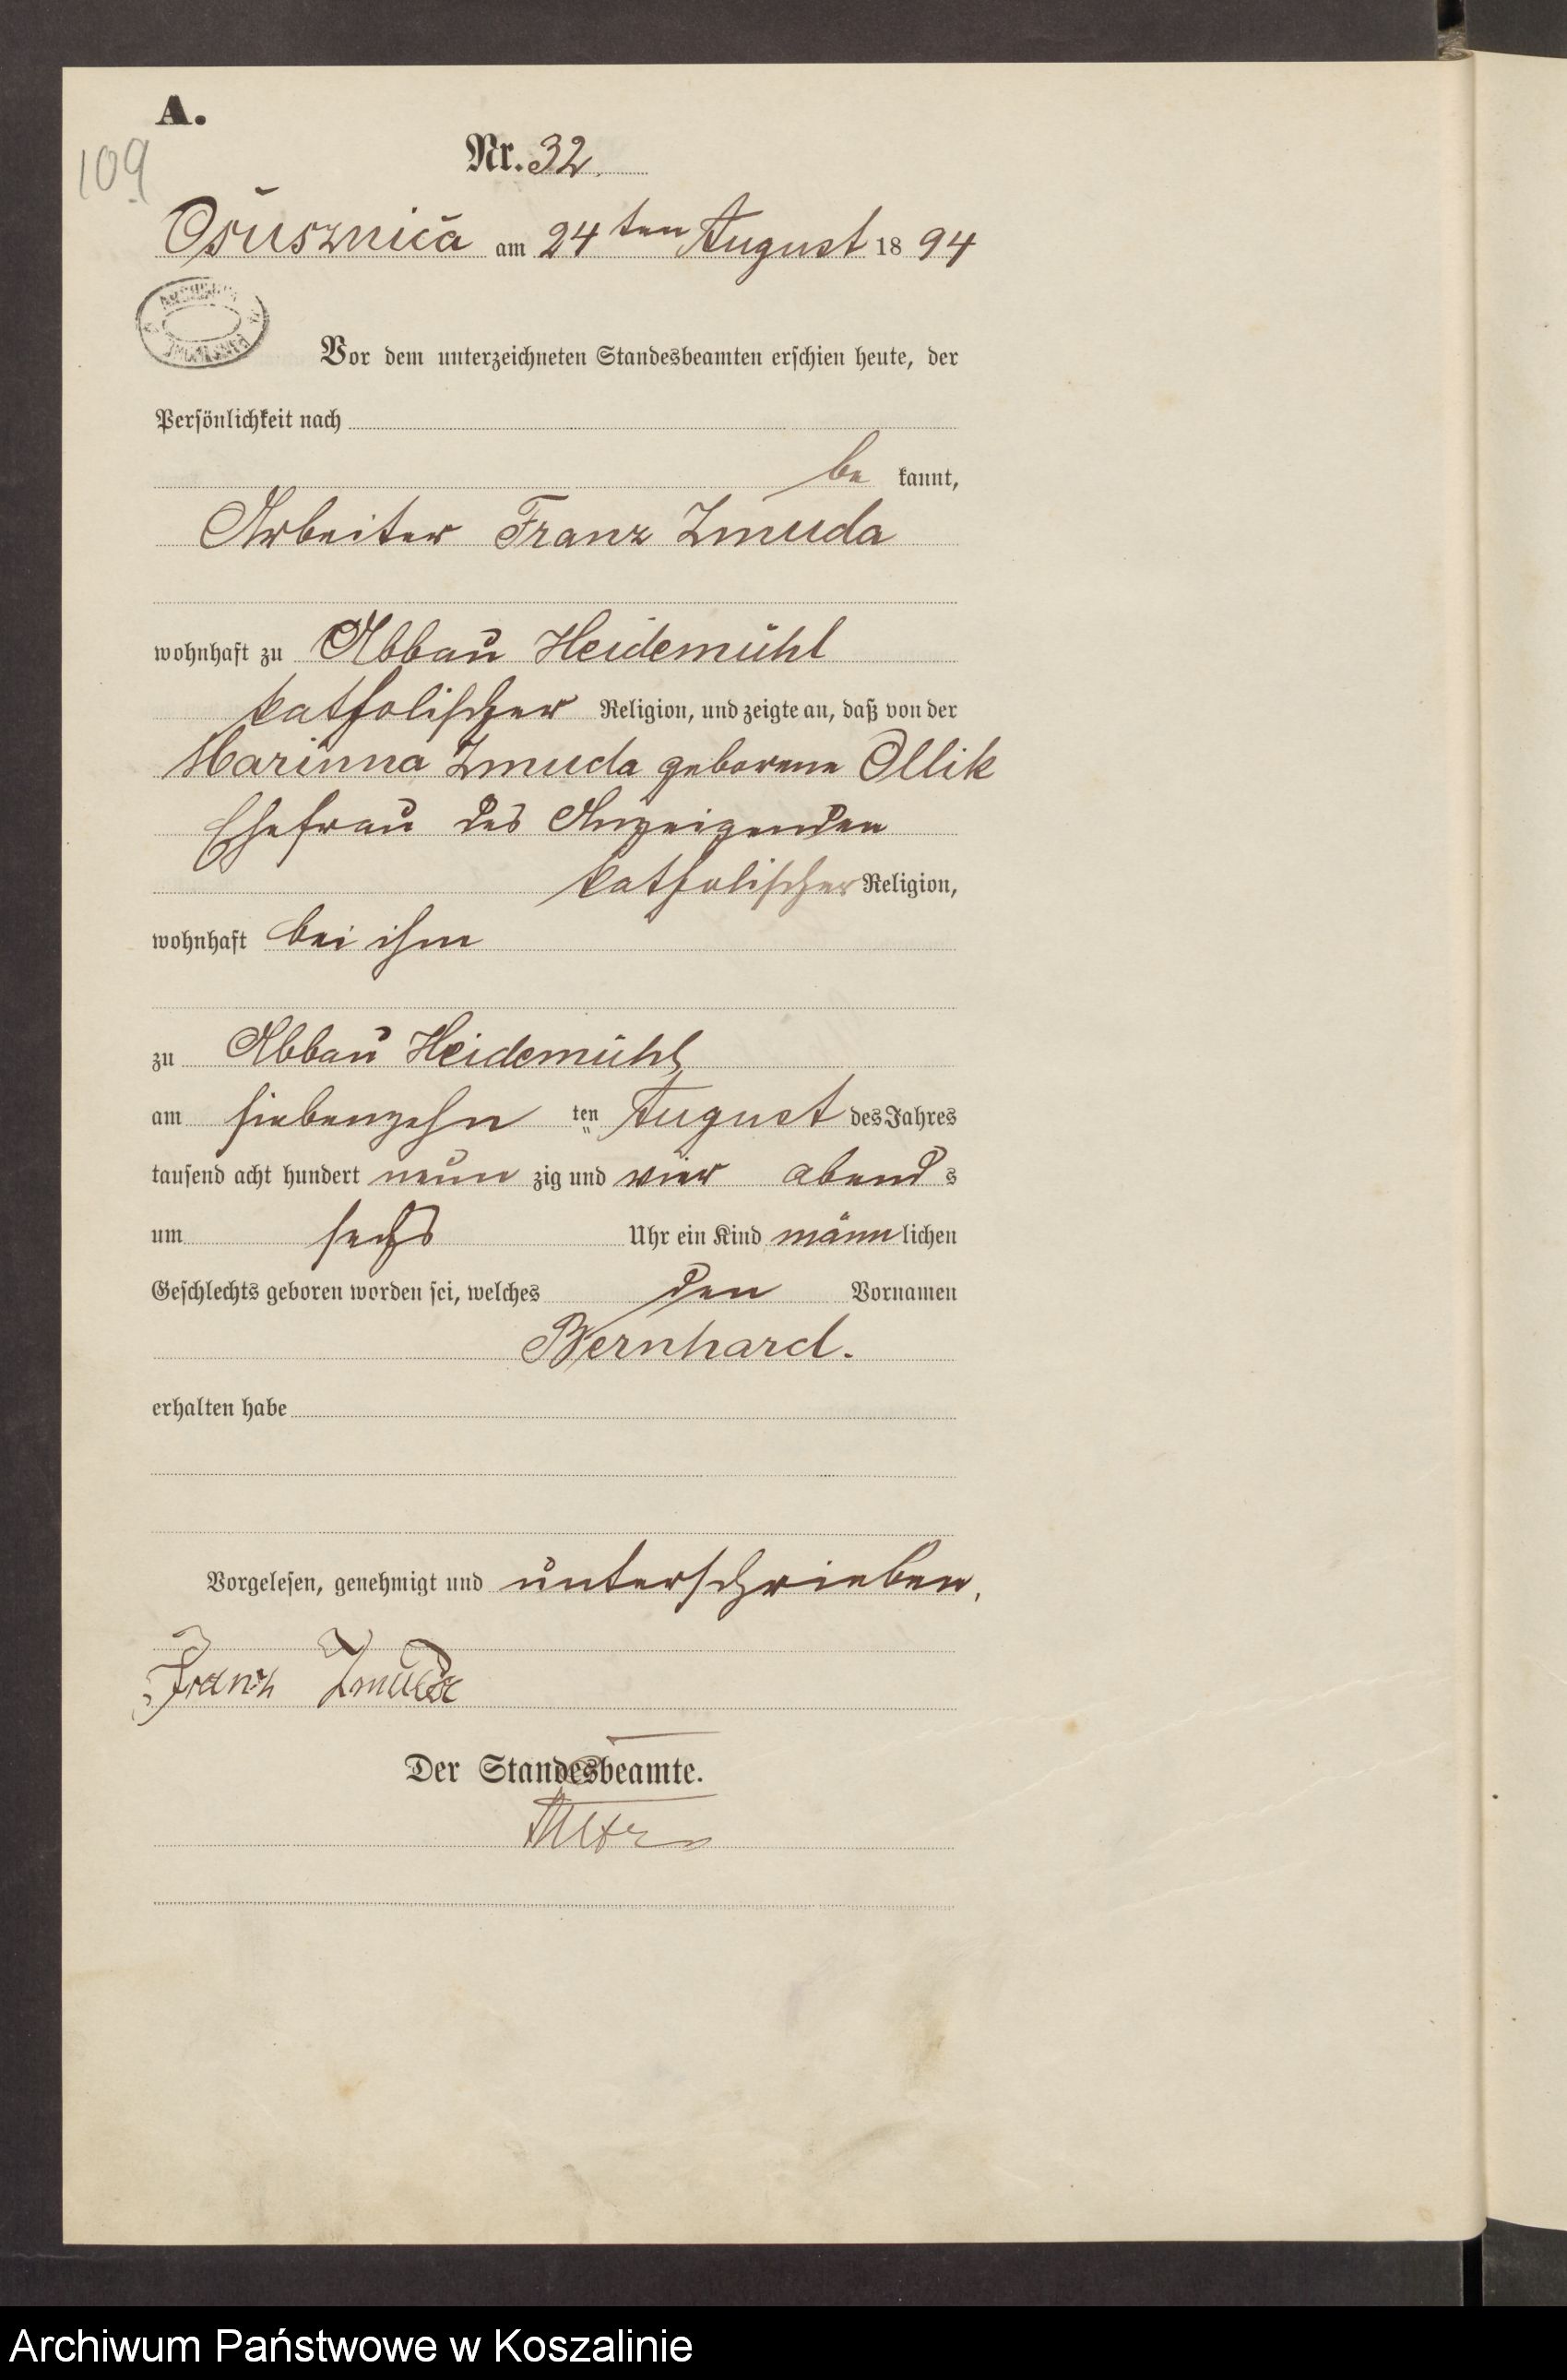 A.
109
Nr. 32.
Osusznica am 24ten August 1894
Vor dem unterzeichneten Standesbeamten erschien heute, der
Persönlichkeit nach
be kannt,
Arbeiter Franz Zmuda
wohnhaft zu Abbau Heidemühl
katholischer Religion, und zeigte an, daß von der
Marianna Zmuda geborene Ollik
Ehefrau des Anzeigenden
katholischer Religion,
wohnhaft bei ihm
zu Abbau Heidemühl
am siebenzehn ten August des Jahres
tausend acht hundert neun zig und vier abend s
um sechs Uhr ein Kind männ lichen
Geschlechts geboren worden sei, welches den Vornamen
Bernhard.
erhalten habe
Vorgelesen, genehmigt und unterschrieben,
Franz Zmuda
Der Standesbeamte.
Archiwum Państwowe w Koszalinie